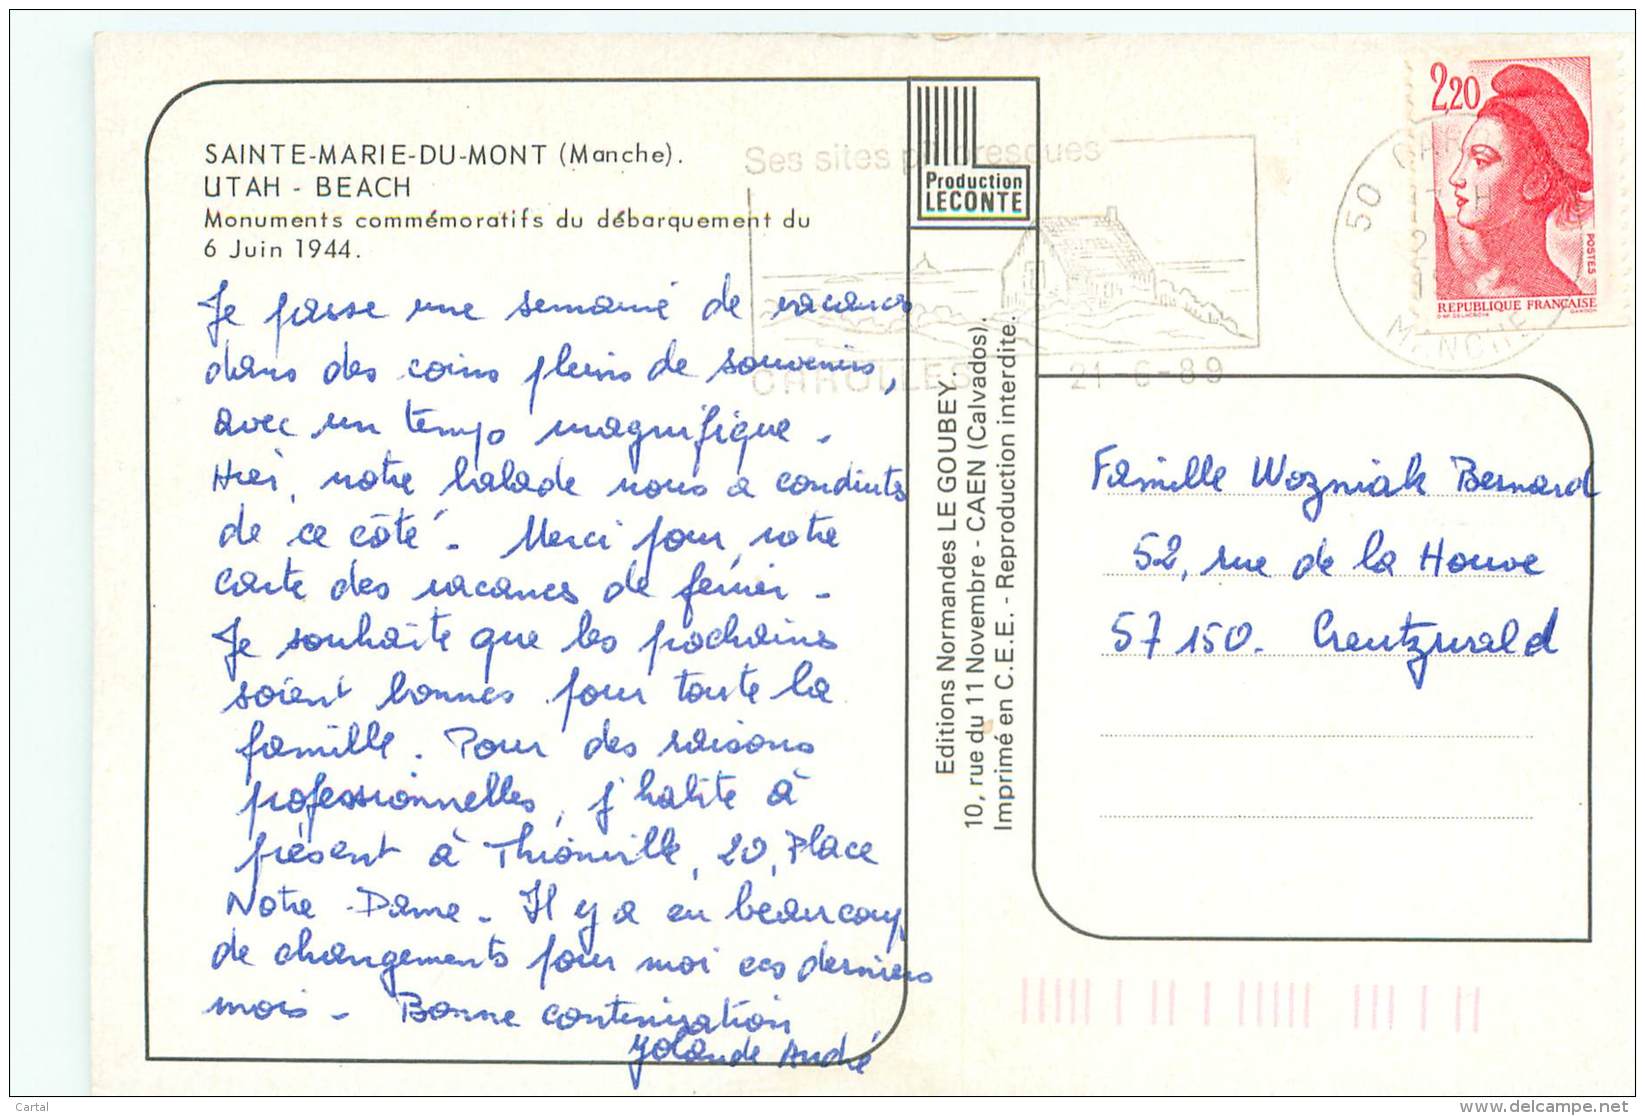 SAINTE-MARIE-DU-MONT (Manche).
UTAH - BEACH
Monuments commémoratifs du débarquement du
6 Juin 1944.
Je passe une semaine de vacances
dans des coins pleins de souvenirs,
avec un temps magnifique.
Hier, notre balade nous a conduits
de ce côté. Merci pour votre
carte des vacances de février.
Je souhaite que les prochaines
soient bonnes pour toute la
famille. Pour des raisons
professionnelles, j'habite à
présent à Thionville, 20, Place
Notre-Dame. Il y a eu beaucoup
de changements pour moi ces derniers
mois. Bonne continuation
Yolande André
Production
LECONTE
Editions Normandes LE GOUBEY.
10, rue du 11 Novembre - CAEN (Calvados).
Imprimé en C.E.E. - Reproduction interdite.
Ses sites pittoresques
CAROLLES 21-6-89
50 CAR
MANCHE
2,20
POSTES
REPUBLIQUE FRANÇAISE
Famille Wozniak Bernard
52, rue de la Houve
57150. Creutzwald
Cartal
www.delcampe.net